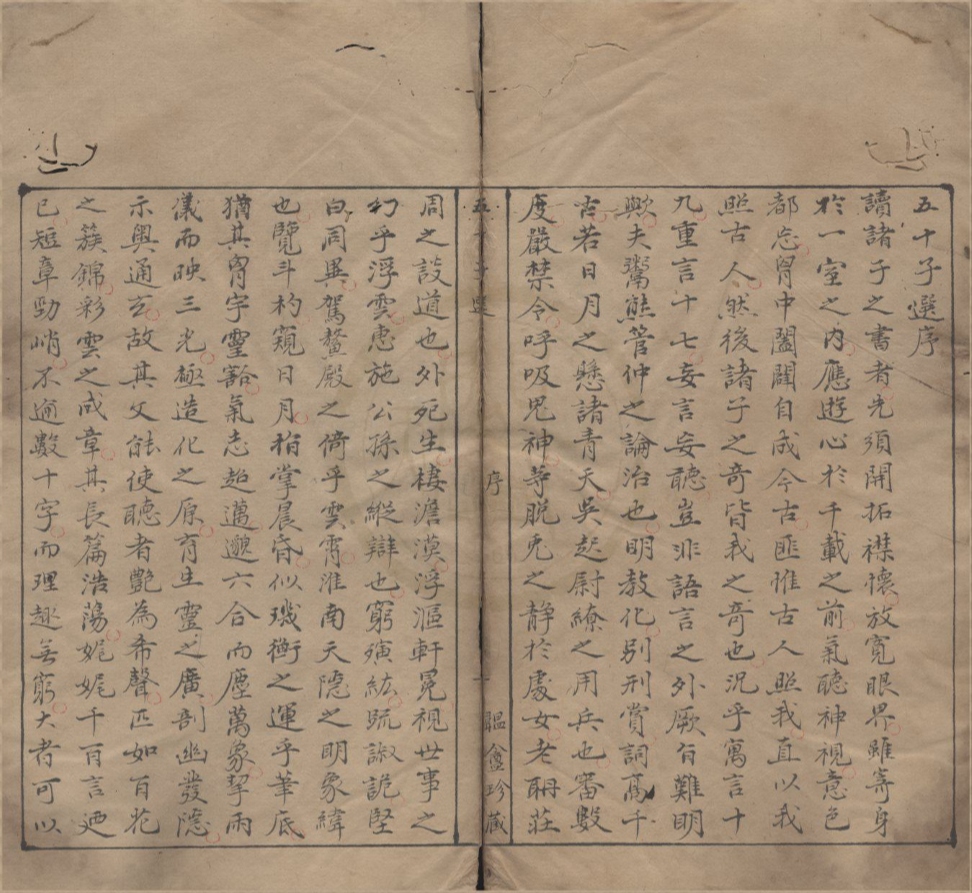 五十子選序
讀諸子之書者先須開拓襟懷放寬眼界雖寄身
於一室之內應遊心於千載之前氣聽神視意色
都忘胷中闔闢自成今古匪惟古人照我直以我
照古人然後諸子之奇皆我之奇也況乎寓言十
九重言十七妄言妄聽豈非語言之外厥旨難明
歟夫鬻熊管仲之論治也明教化別刑賞詞高千
古若日月之懸諸青天吳起尉繚之用兵也審數
度嚴禁令呼吸鬼神等脫兎之静於處女老聃莊
五十子選
序
聊盦珍藏
周之設道也外死生棲澹漠浮漚軒冕視世事之
幻乎浮雲惠施公孫之縱辯也窮殫紘䟽諔詭堅
白同異駕鼇殿之倚乎雲霄淮南天隱之明象緯
也覽斗杓窺日月指掌晨昏似璣衡之運乎筆底
猶其胷宇靈豁氣志超邁邈六合而塵萬象挈兩
儀而映三光極造化之原育生靈之廣剖幽發隱
示輿通玄故其文能使聽者艶為希聲匹如百花
之簇錦彩雲之成章其長篇浩蕩娓娓千百言廼
已短章勁峭不逾數十字而理趣無窮大者可以